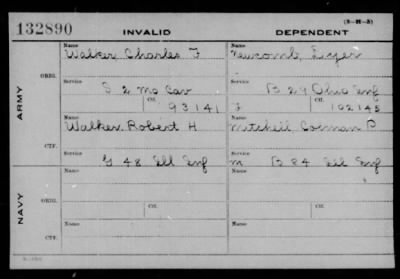 (3-H-3)
132890 INVALID DEPENDENT
ARMY
ORIG.
Name Name
Walker Charles F Newcomb,
Service Service
S 2 Mo Cav B 29 Ohio Inf
Ctf. Ctf.
93141 F 102145
CTF.
Name Name
Walker Robert H Mitchell, P
Service Service
G 48 Ill Inf M B 84 Ill Inf
NAVY
ORIG.
Name Name
Service Ctf. Service Ctf.
CTF.
Name Name